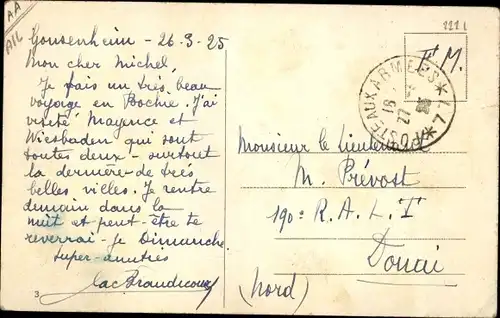 AA
AIL
Gonsenheim - 26-3-25
Mon cher Michel,
Je fais un très beau
voyage en Boochie. J'ai
visité Mayence et
Wiesbaden qui sont
toutes deux - surtout
la dernière - de très
belles villes. Je rentre
demain dans la
nuit et peut-être te
reverrai-je Dimanche
3
F.M.
POSTE AUX ARMEES * 77 *
18
27-3
25
Monsieur le Lieutenant
M. Prévost
190e R.A.L.T
Douai
(Nord)